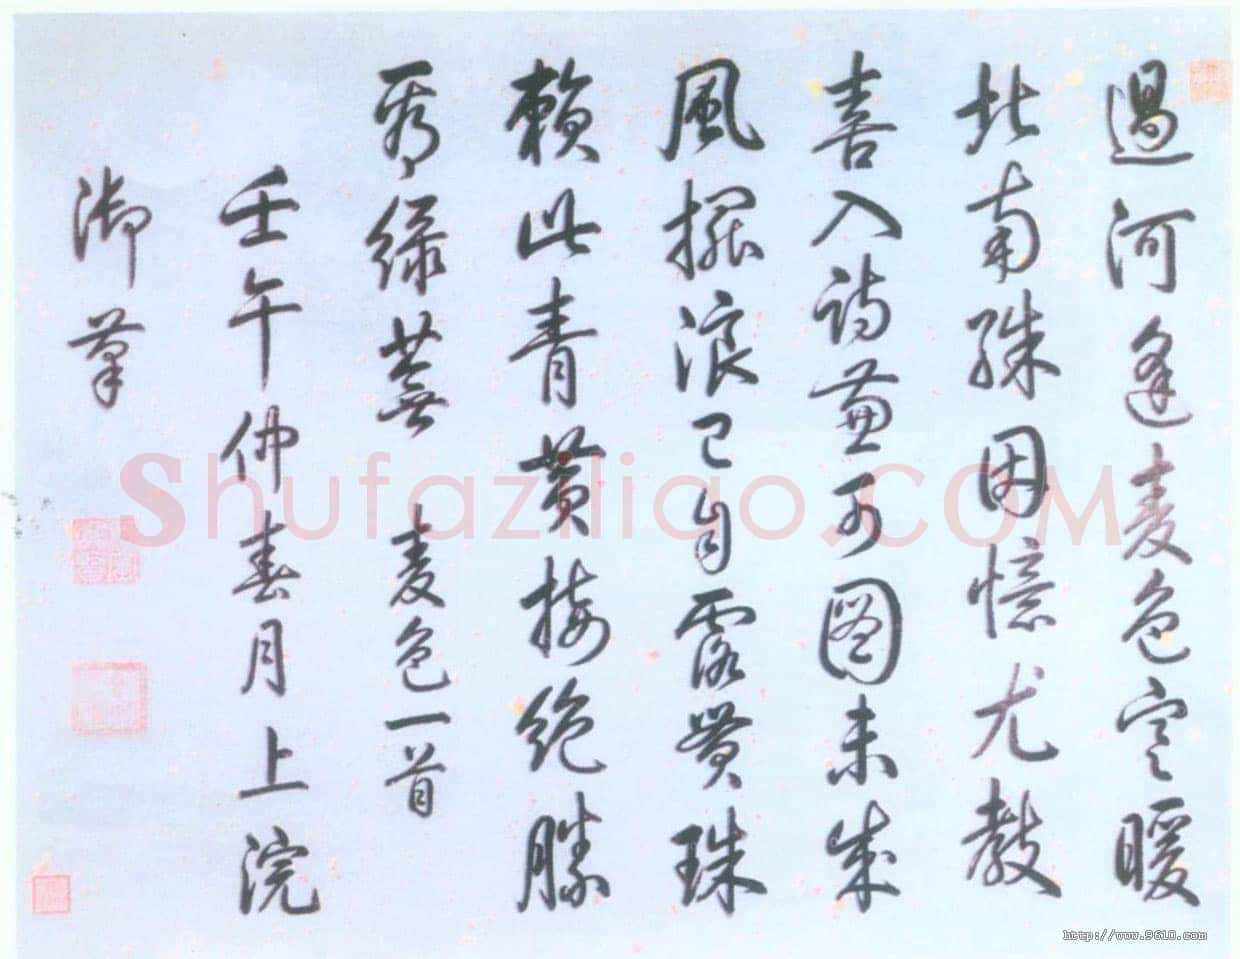 過河逢麦色寒暖
北南殊因憶尤教
喜入詩兼可圖未成
風擺浪已自露貫珠
賴此青黄接絶勝
秀綠蕪 麦色一首
壬午仲春月上浣
御筆
shufaziliao.COM
http://www.9610.com